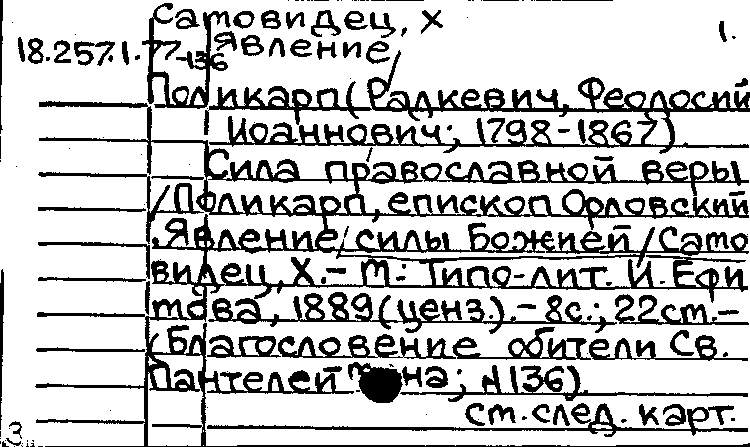 Самовидец, Х 1.
18.257.1.77-136 Явление
Поликарп (Радкевич, Феодосий
Иоаннович; 1798-1867)
Сила православной веры
/Поликарп, епископ Орловский
. Явление/силы Божией/Само
видец, Х.- М.: Типо-лит. И. Ефи
мова, 1889 (ценз.).- 8с.; 22см.-
(Благословение обители Св.
Пантелеймона; №136).
см. след. карт.
3